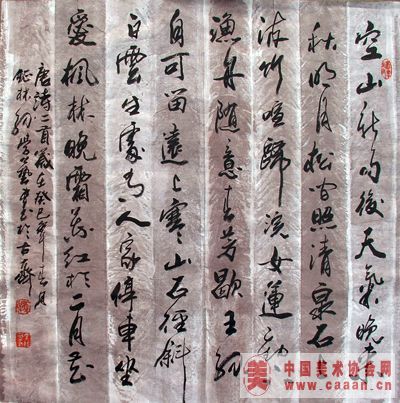 空山新雨後天氣晚來
秋明月松間照清泉石上
流竹喧歸浣女蓮動
漁舟隨意春芳歇王孫
自可留遠上寒山石徑斜
白雲生處有人家停車坐
愛楓林晚霜葉紅於二月花
唐詩二首歲在癸巳年春月
中国美术协会网
www.caaan.cn